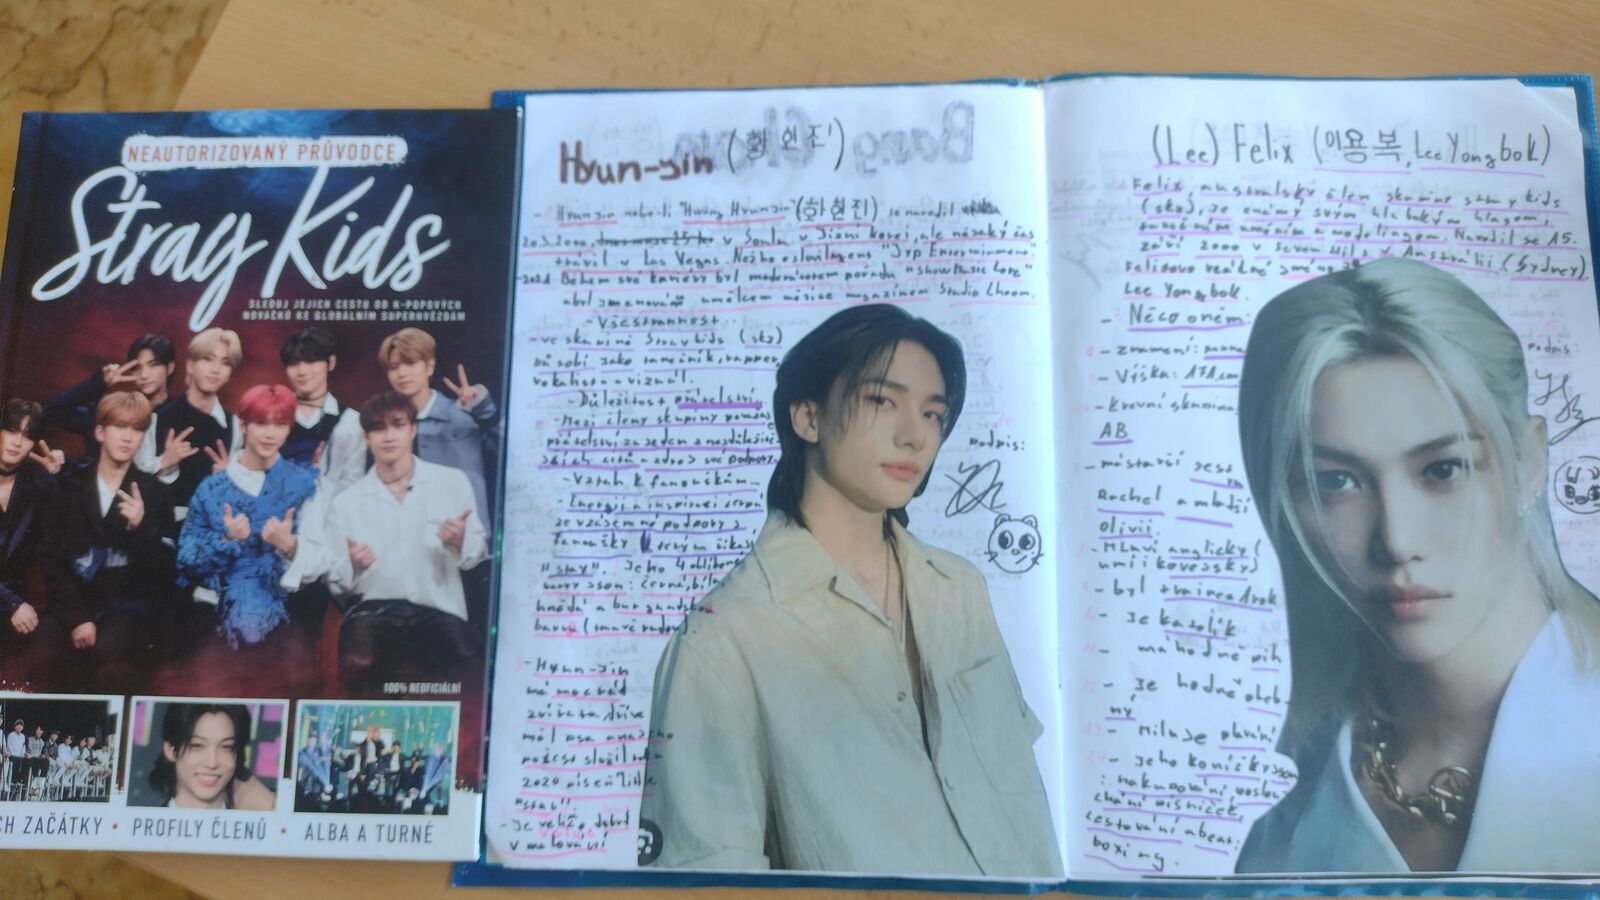 NEAUTORIZOVANÝ PRŮVODCE
Stray Kids
SLEDUJ JEJICH CESTU OD K-POPOVÝCH
NOVÁČKŮ KE GLOBÁLNÍM SUPERHVĚZDÁM
100% NEOFICIÁLNÍ
CH ZAČÁTKY • PROFILY ČLENŮ • ALBA A TURNÉ
Hyun-jin (황현진)
- Hyunjin neboli "Hwang Hyunjin" se narodil
20.3.2000, v Soulu v Jižní Korei, ale nějaký čas
trávil v Las Vegas. Než ho oslovil agent "Jyp Entertainment.
Během své kariéry byl moderátorem pořadu "show Music Core"
a byl jmenován umělcem měsíce magazínem Studia Choom.
- Všestrannost
- ve skupině Stray kids (skz)
působí jako tanečník, rapper,
vokalista a vizuál.
- Důležitost přátelství
- Mezi členy skupiny
přátelství za jeden z nejdůležitě-
jších citů a zdroj své podpory.
- Vztah k fanouškům
- Energii a inspiraci čerpá
ze vzájemné podpory s
fanoušky, kterým říkají
"stay". Jeho 4 oblíbené
barvy jsou: černá, bílá,
hnědá a burgundská
barva (tmavě rudá).
- Hyun-jin
má moc rád
zvířata dříve
měl psa na jeho
počest složil roku
2020 píseň "little
star".
- Je velice dobrý
v malování
podpis:
(Lee) Felix (이용복, Lee Yongbok)
Felix, australský člen skupiny stray kids
(skz), je známý svým hlubokým hlasem,
tanečním uměním a modelingem. Narodil se 15.
září 2000 v seven hills v Austrálii (Sydney).
Felixovo reálné jméno
Lee Yongbok.
- Něco o něm:
- znamení: panna
- Výška: 171 cm
- Krevní skupina:
AB
- má starší sestru
Rachel a mladší
Olivii
- Mluví anglicky (
umí i korejsky)
- byl trainee 1 rok
- Je katolík
- má hodně pih
- Je hodně oheb-
ný
- Miluje plavání
- Jeho koníčky jsou
: nakupování, poslou-
chání písniček,
cestování a beat-
boxing.
podpis: